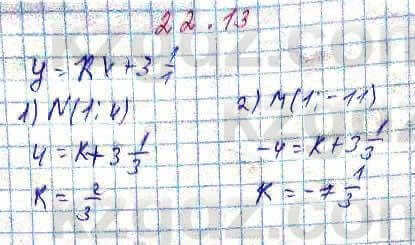 22.13
y = kx + 3 1/1
1) N(1; 4)
4 = k + 3 1/3
k = 2/3
2) M(1; -11)
-4 = k + 3 1/3
k = -7 1/3